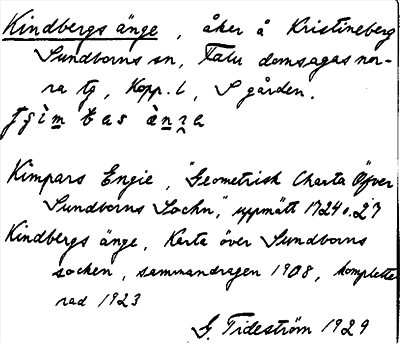 Kindbergs änge, åker å Kristineberg
Sundborns sn, Falu domsagas nor-
ra tg, Kopp. l, S gården.

Kimpars Engie, "Geometrisk Charta Öfver
Sundborns Sochn," uppmätt 1724 o. 27
Kindbergs änge, Karta över Sundborns
socken, sammandragen 1908, komplette
rad 1923
G. Tideström 1929